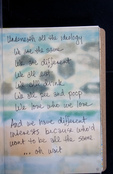 Underneath all the ideology
We are the same
We are different
We all eat
We all drink
We all pee and poop
We love who we love
And we have different
interests because who'd
want to be all the same
... oh wait